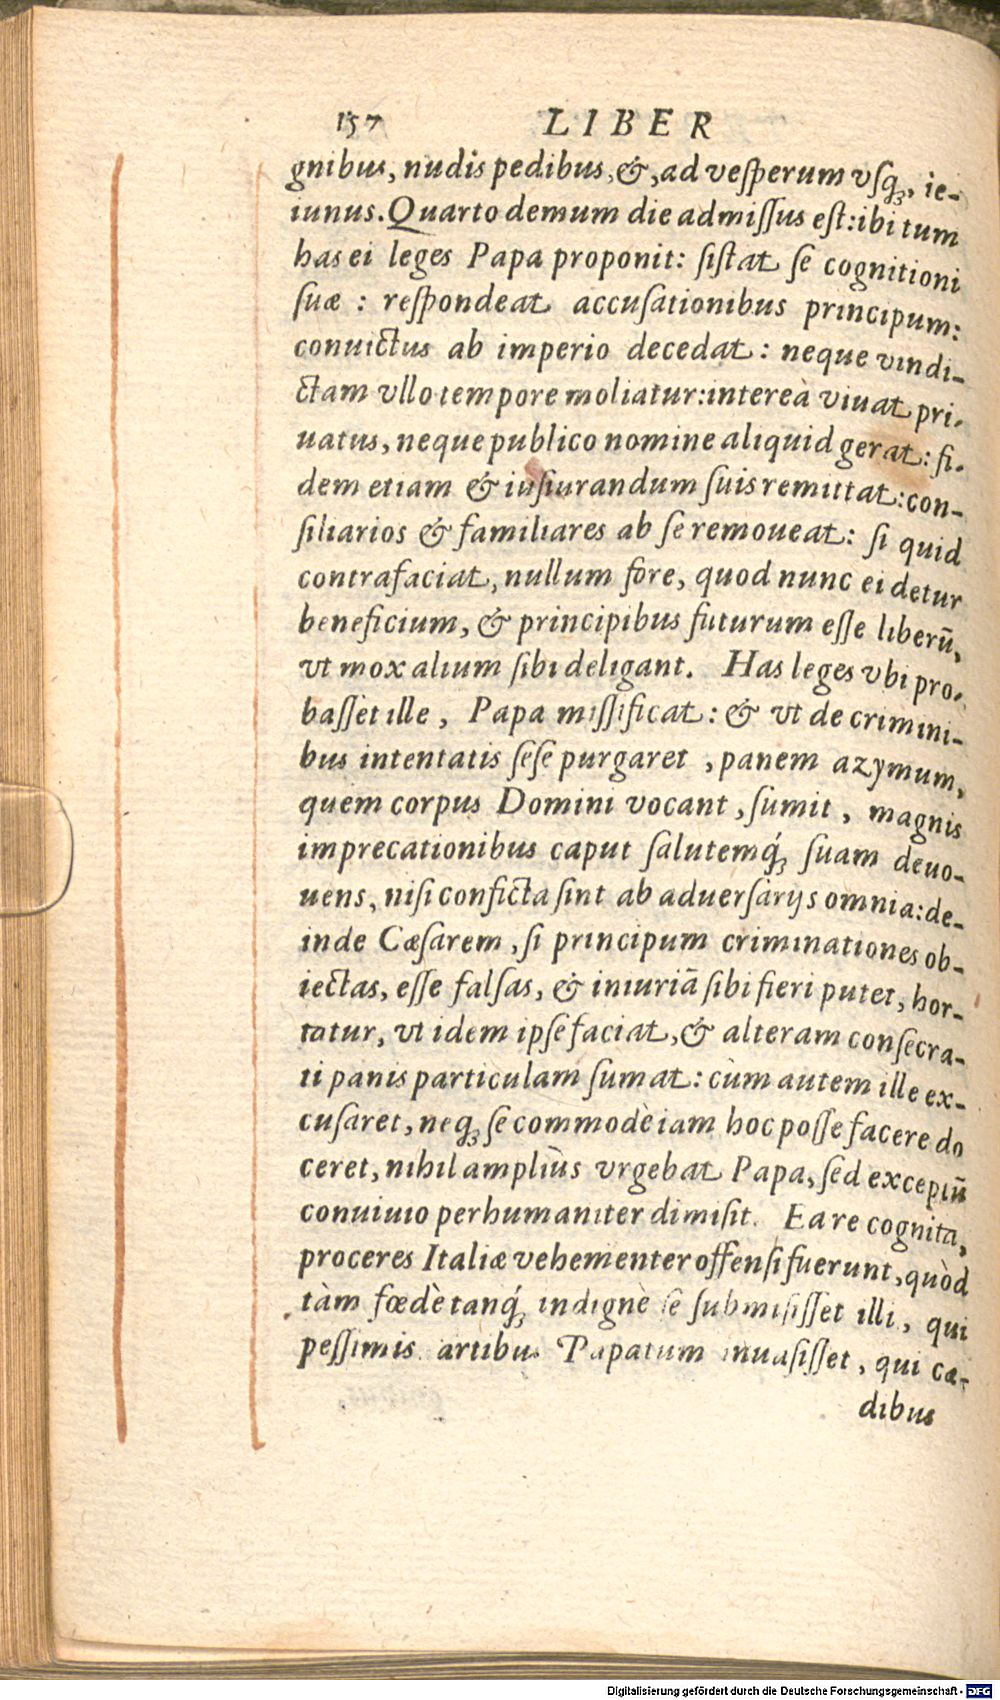 157 LIBER
gnibus, nudis pedibus, &, ad veſperum vſq;, ie-
iunus. Quarto demum die admiſſus eſt: ibi tum
has ei leges Papa proponit: ſiſtat ſe cognitioni
ſuæ : reſpondeat accuſationibus principum:
conuictus ab imperio decedat : neque vindi-
ctam vllo tempore moliatur: intereà viuat pri-
uatus, neque publico nomine aliquid gerat: fi-
dem etiam & iuſiurandum ſuis remittat: con-
ſiliarios & familiares ab ſe remoueat: ſi quid
contrafaciat, nullum fore, quod nunc ei detur
beneficium, & principibus futurum eſſe liberū,
vt mox alium ſibi deligant. Has leges vbi pro-
baſſet ille, Papa miſſificat: & vt de crimini-
bus intentatis ſeſe purgaret, panem azymum,
quem corpus Domini vocant, ſumit, magnis
imprecationibus caput ſalutemq́; ſuam deuo-
uens, niſi conficta ſint ab aduerſarijs omnia: de-
inde Cæſarem, ſi principum criminationes ob-
iectas, eſſe falſas, & iniuriā ſibi fieri putet, hor-
tatur, vt idem ipſe faciat, & alteram conſecra-
ti panis particulam ſumat: cùm autem ille ex-
cuſaret, neq; ſe commodè iam hoc poſſe facere do
ceret, nihil ampliùs vrgebat Papa, ſed exceptū
conuiuio perhumaniter dimiſit. Ea re cognita,
proceres Italiæ vehementer offenſi fuerunt, quòd
tàm fœdè tanq́; indignè ſe ſubmiſiſſet illi, qui
peſſimis artibus Papatum inuaſiſſet, qui cæ-
dibus
Digitalisierung gefördert durch die Deutsche Forschungsgemeinschaft - DFG